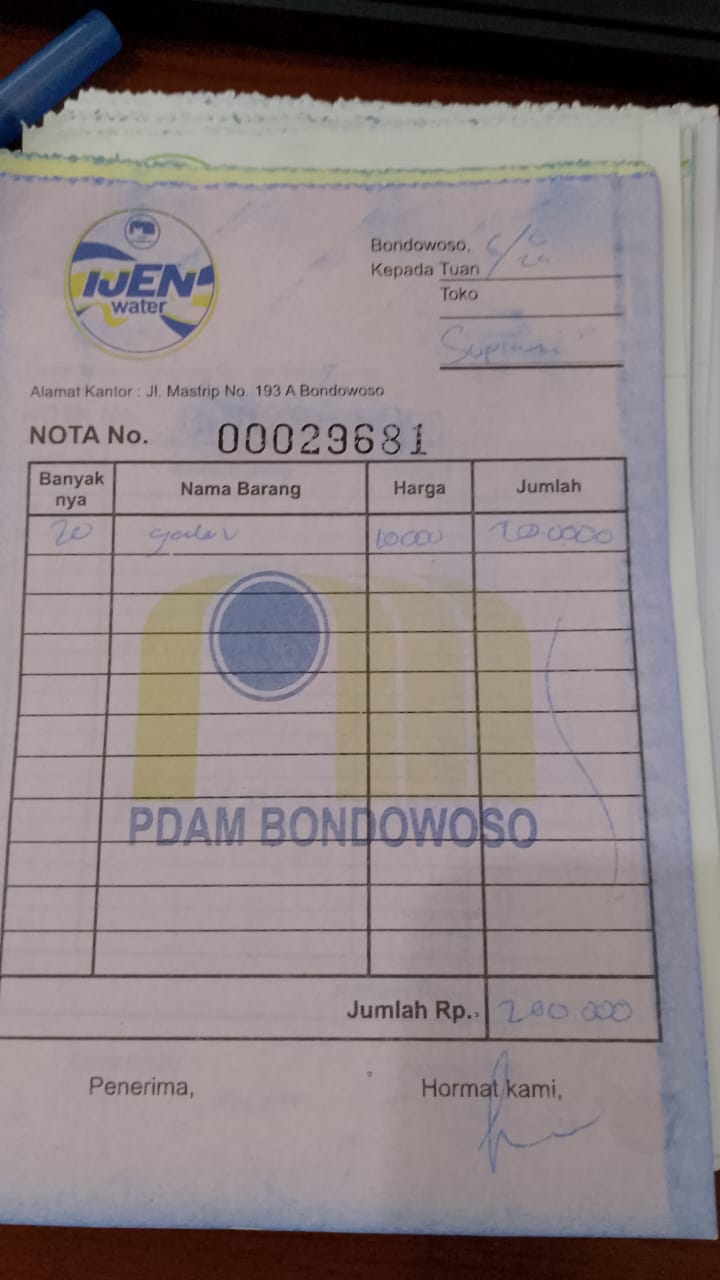 IJEN
water
Bondowoso,
Kepada Tuan
Toko
Alamat Kantor : Jl. Mastrip No. 193 A Bondowoso
NOTA No. 00029681
Banyak nya Nama Barang Harga Jumlah
20 galon 10000 200.000
PDAM BONDOWOSO
Jumlah Rp.. 200.000
Penerima, Hormat kami,